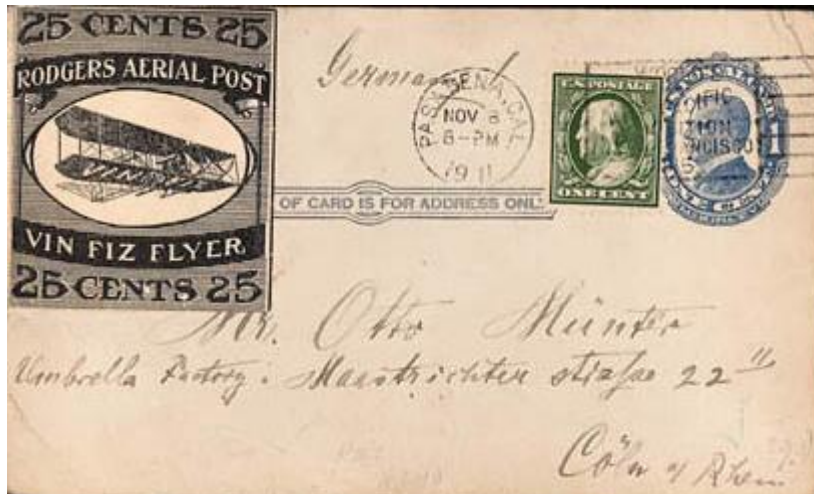 25 CENTS 25
RODGERS AERIAL POST
VIN FIZ
VIN FIZ FLYER
25 CENTS 25
Germany
PASADENA, CAL.
NOV 8
8-PM
1911
U.S. POSTAGE
ONE CENT
1
OF CARD IS FOR ADDRESS ONLY
Mr. Otto Münter
Umbrella Factory. Maastrichter straße 22 II
Cöln a/ Rhein